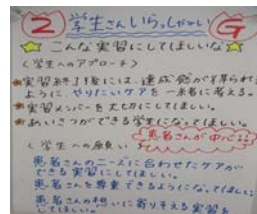 2 学生さんいらっしゃい G
こんな実習にしてほしいな
〈学生へのアプローチ〉
実習終了時には、達成感が得られる
ように、やりたいケアを一緒に考える。
実習メンバーを大切にしてほしい。
あいさつができる学生になってほしい。
患者さんが中心よ
〈学生への願い〉
患者さんのニーズに合わせたケアが
できる実習にしてほしい。
患者さんを尊重できるようになってほしい
患者さんの想いに寄りそえる実習を
してほしい。